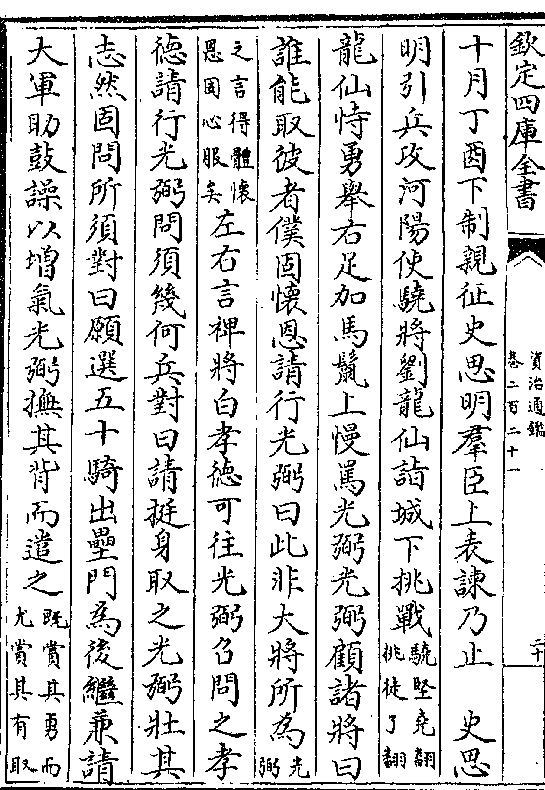 欽定四庫全書
資治通鑑
卷二百二十一
二十
十月丁酉下制親征史思明羣臣上表諫乃止 史思
明引兵攻河陽使驍將劉龍仙詣城下挑戰驍堅堯翻
挑徒了翻
龍仙恃勇舉右足加馬鬛上慢罵光弼光弼顧諸將曰
誰能取彼者僕固懷恩請行光弼曰此非大將所為光弼
之言得體懷
恩固心服矣左右言裨將白孝德可往光弼召問之孝
德請行光弼問須幾何兵對曰請挺身取之光弼壯其
志然固問所須對曰願選五十騎出壘門為後繼兼請
大軍助鼓譟以增氣光弼撫其背而遣之既賞其勇而
尤賞其有取